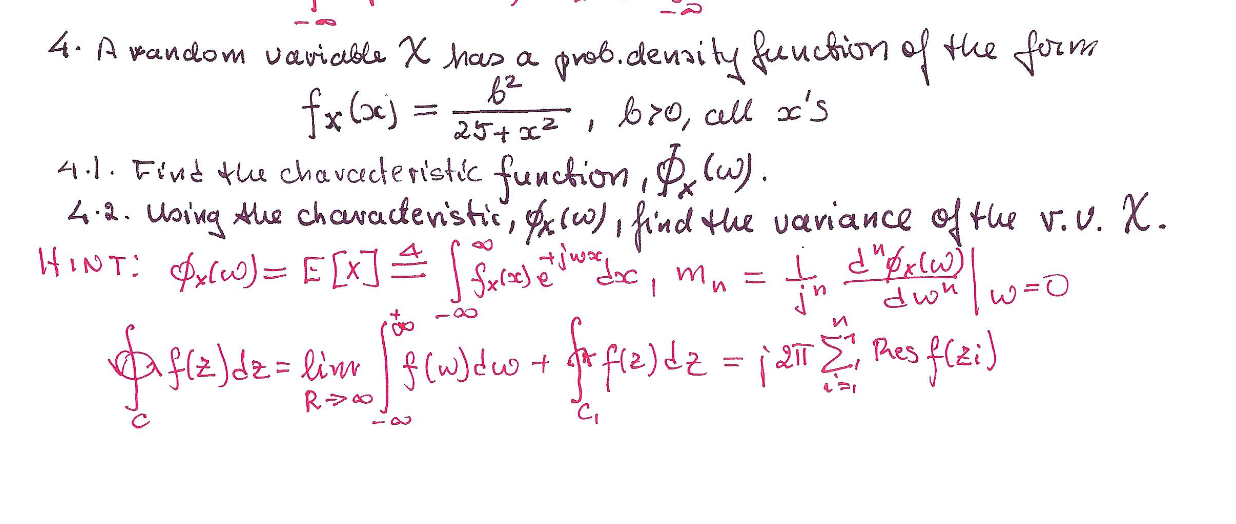 4. A random variable X has a prob. density function of the form
f_x(x) = b² / (25 + x²) , b>0, all x's
4.1. Find the characteristic function, Φ_x(ω).
4.2. Using the characteristic, ϕ_x(ω), find the variance of the r.v. X.
HINT: ϕ_x(ω) = E[X] ≜ ∫_{-∞}^{∞} f_x(x) e^{+jωx} dx, m_n = 1/j^n d^n ϕ_x(ω)/dω^n |_{ω=0}
∮_C f(z)dz = lim_{R→∞} ∫_{-∞}^{+∞} f(ω)dω + ∮_{C_1} f(z)dz = j2π Σ_{i=1}^{n} Res f(z_i)